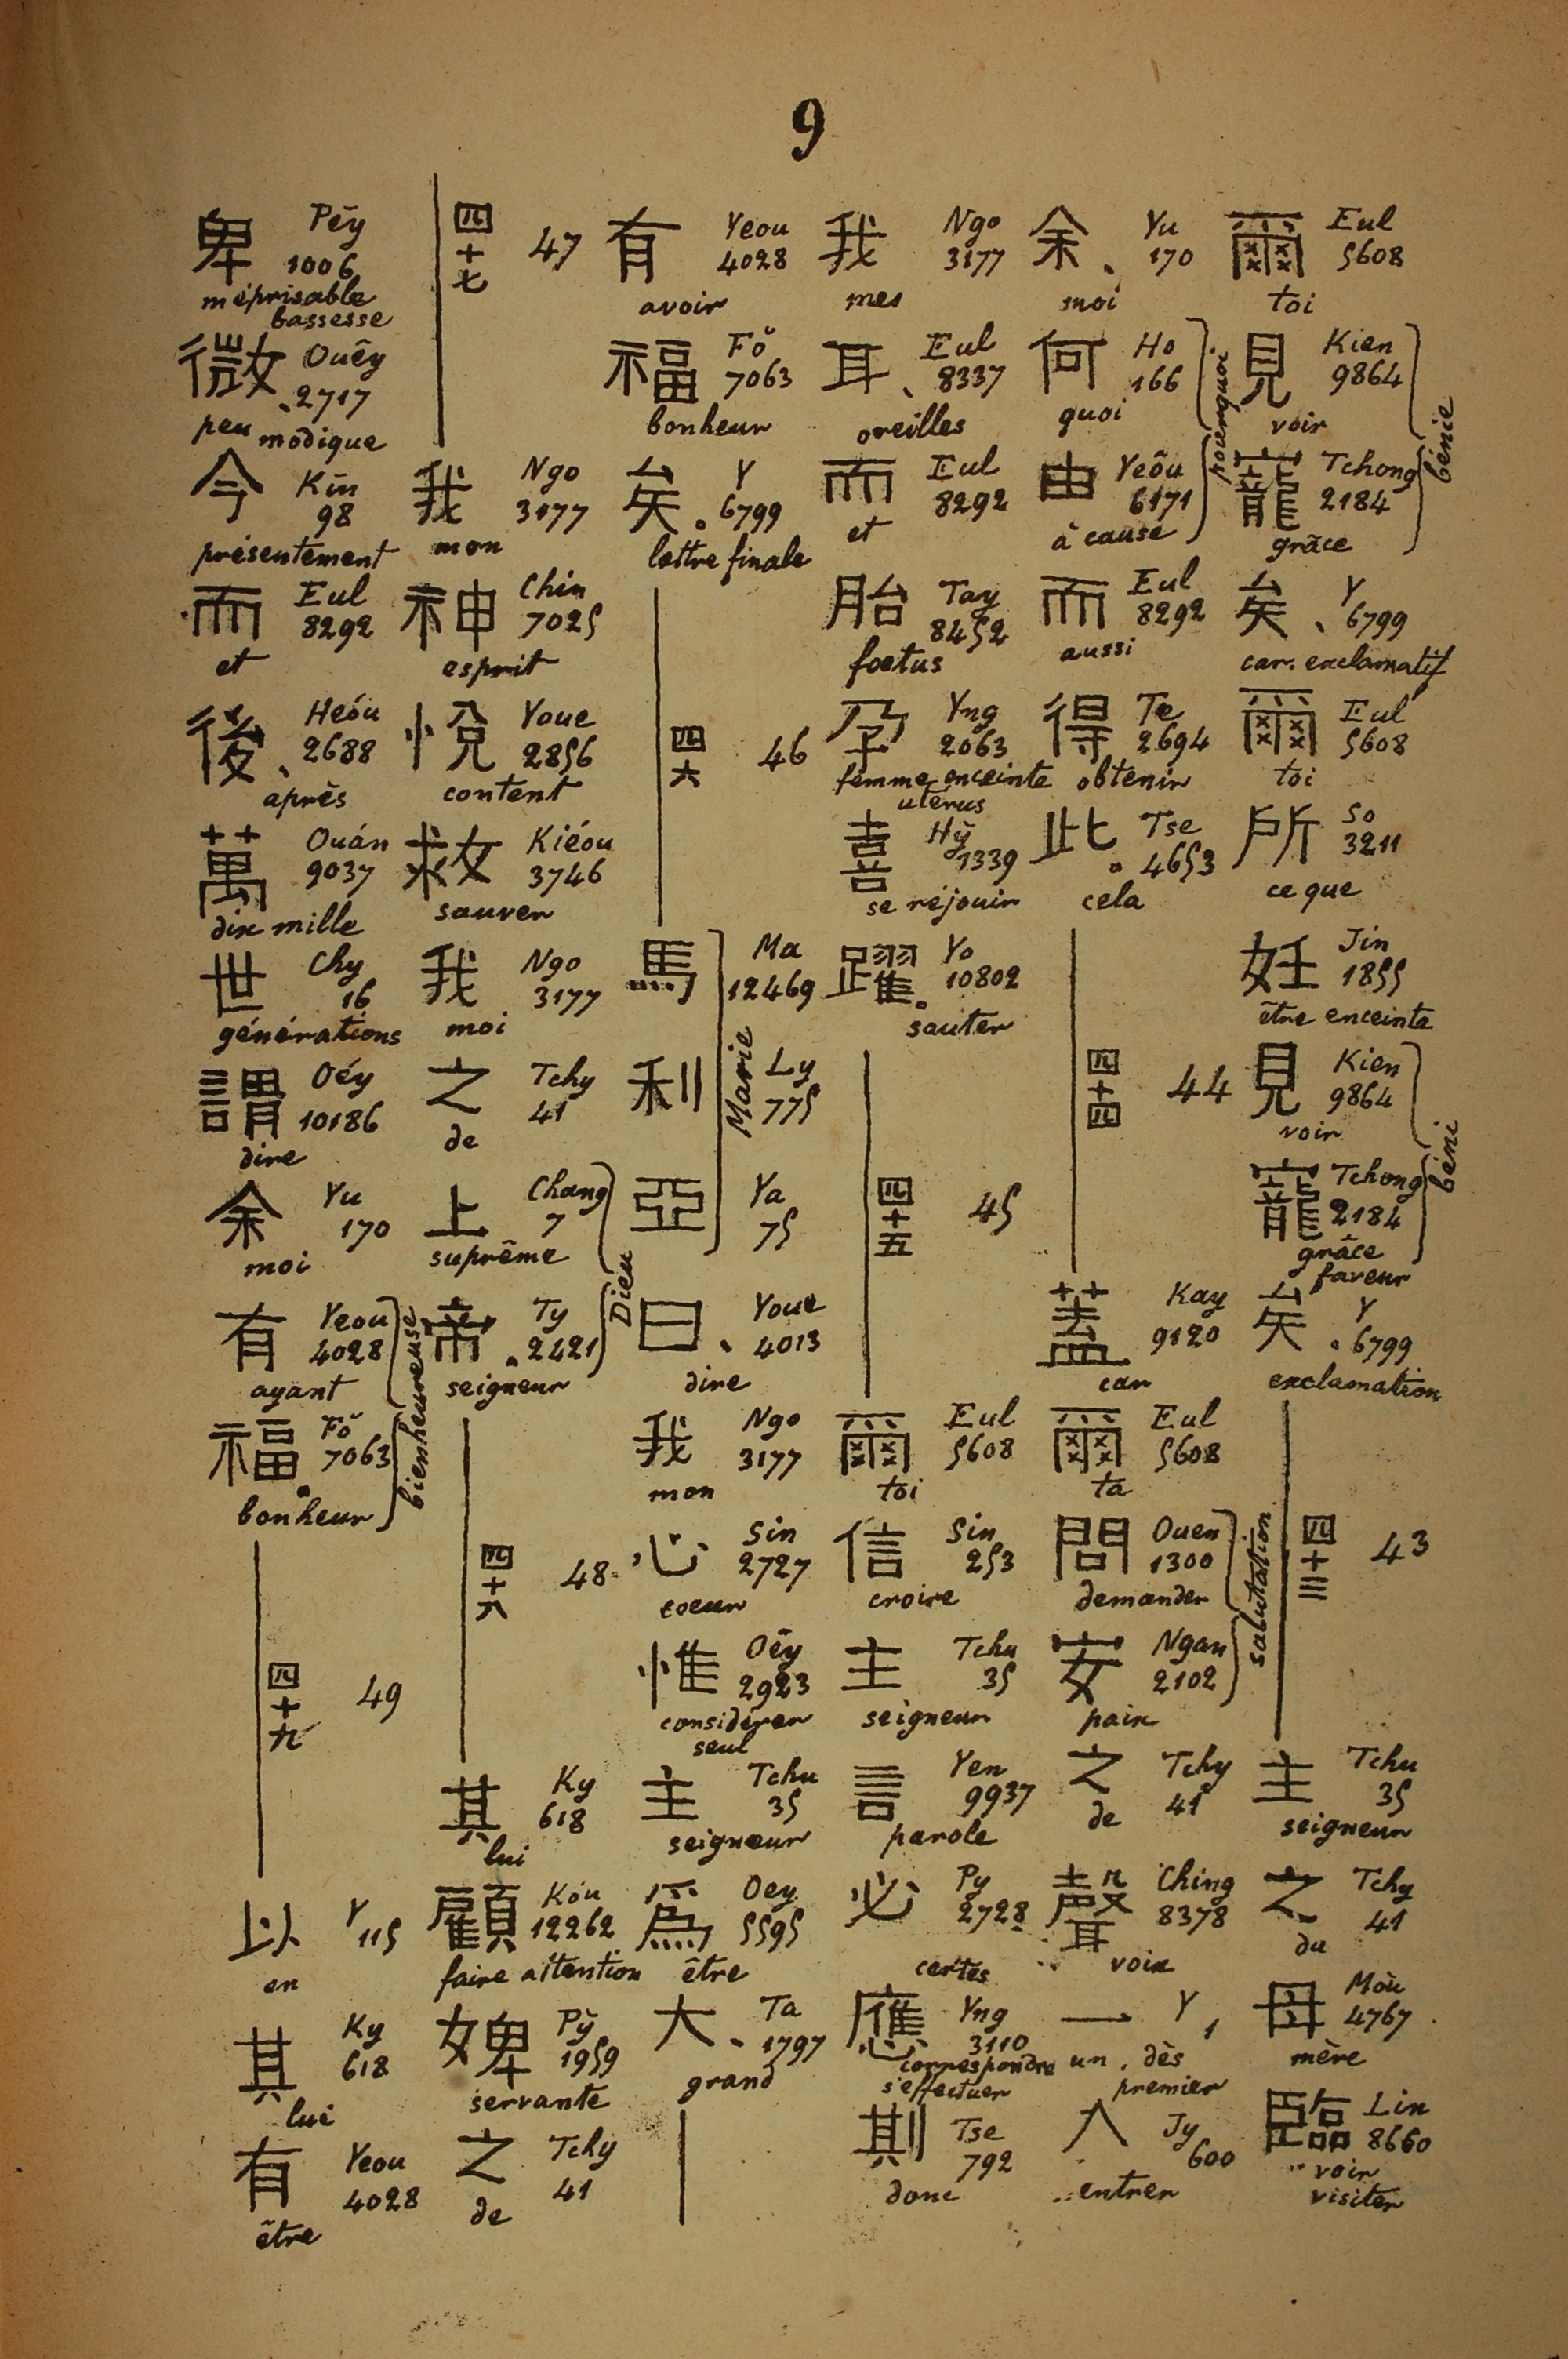 9
爾 Eul
5608
toi
見 Kien
9864
voir
寵 Tchong
2184
grâce
bénie
矣、 Y
6799
car. exclamatif
爾 Eul
5608
toi
所 So
3211
ce que
妊 Jin
1855
être enceinte
見 Kien
9864
voir
寵 Tchong
2184
grâce
faveur
béni
矣. Y
6799
exclamation
四十三 43
主 Tchu
35
seigneur
之 Tchy
41
du
母 Moù
4767
mère
臨 Lin
8660
voir
visiter
余、 Yu
170
moi
何 Ho
166
quoi
由 Yeôu
6171
à cause
pourquoi
而 Eul
8292
aussi
得 Te
2694
obtenir
此。 Tse
4653
cela
四十四 44
蓋 Kay
9120
car
爾 Eul
5608
ta
問 Ouen
1300
demander
安 Ngan
2102
paix
salutation
之 Tchy
41
de
聲 Ching
8378
voix
一 Y
1
un, dès
premier
入 Jy
600
entrer
我 Ngo
3177
mes
耳、 Eul
8337
oreilles
而 Eul
8292
et
胎 Tay
8452
foetus
孕 Yng
2063
femme enceinte
utérus
喜 Hỳ
1339
se réjouir
躍。 Yo
10802
sauter
四十五 45
爾 Eul
5608
toi
信 Sin
253
croire
主 Tchu
35
seigneur
言 Yen
9937
parole
必 Py
2728
certes
應 Yng
3110
correspondre
s'effectuer
則 Tse
792
donc
有 Yeou
4028
avoir
福 Fŏ
7063
bonheur
矣。 Y
6799
lettre finale
四六 46
馬 Ma
12469
利 Ly
775
亞 Ya
75
Marie
曰、 Youe
4013
dire
我 Ngo
3177
mon
心 Sin
2727
coeur
惟 Oêy
2923
considérer
seul
主 Tchu
35
seigneur
爲 Oey
5595
être
大、 Ta
1797
grand
四十七 47
我 Ngo
3177
mon
神 Chin
7025
esprit
悅 Youe
2856
content
救 Kiéou
3746
sauver
我 Ngo
3177
moi
之 Tchy
41
de
上 Chang
7
suprême
帝。 Ty
2421
seigneur
Dieu
四十八 48
其 Ky
618
lui
顧 Kóu
12262
faire attention
婢 Pỳ
1959
servante
之 Tchy
41
de
卑 Pēy
1006
méprisable
bassesse
微、 Ouêy
2717
peu modique
今 Kīn
98
présentement
而 Eul
8292
et
後、 Heóu
2688
après
萬 Ouán
9037
dix mille
世 Chy
16
générations
謂 Oéy
10186
dire
余 Yu
170
moi
有 Yeou
4028
ayant
福。 Fŏ
7063
bonheur
bienheureuse
四十九 49
以 Y
115
en
其 Ky
618
lui
有 Yeou
4028
être